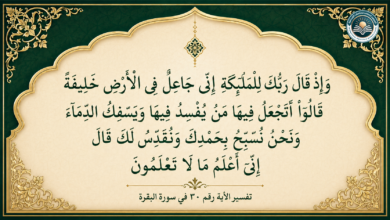 وَإِذْ قَالَ رَبُّكَ لِلْمَلَٰٓئِكَةِ إِنِّى جَاعِلٌ فِى الْأَرْضِ خَلِيفَةً
قَالُوٓا۟ أَتَجْعَلُ فِيهَا مَنْ يُفْسِدُ فِيهَا وَيَسْفِكُ الدِّمَآءَ
وَنَحْنُ نُسَبِّحُ بِحَمْدِكَ وَنُقَدِّسُ لَكَ قَالَ
إِنِّىٓ أَعْلَمُ مَا لَا تَعْلَمُونَ
تفسير الآية رقم ٣٠ في سورة البقرة